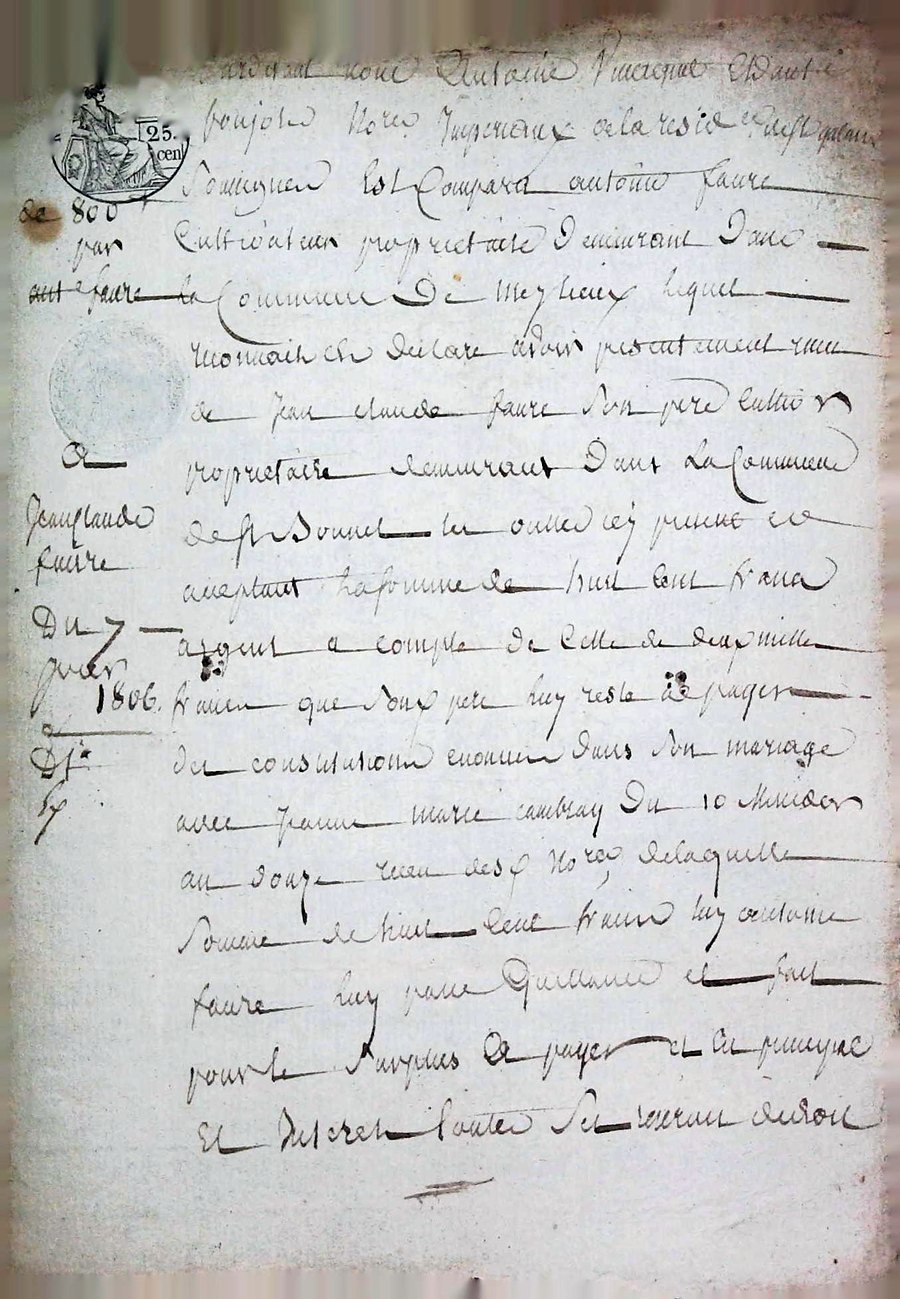 Pardevant nous Antoine
25.
cen
Notres Imperiaux de la residence de St galmier
Soussignes Est Comparu antoine faure
de 800 f
par
ant e faure
Cultivateur proprietaire Demeurant Dans
la Commune De Meylieux lequel
reconnait et declare avoir presentement recu
de Jean claude faure Son pere Cultivr
proprietaire demeurant Dans La Commune
de St Bonnet les oulles icy present et
acceptant La somme de huit Cent francs
argent a compte de Celle de deux mille
francs que Son pere luy reste de payer
a
Jean Claude
faure
Du 7
jvier
1806.
des constitutions enoncees dans son mariage
avec Jeanne marie cambray Du 10 Messidor
an douze recu desd Nores de laquelle
Somme de huit Cent francs luy antoine
faure luy passe Quittance et fait
pour le Surplus a payer et en principal
Et Interets toutes Ses reserves de droit